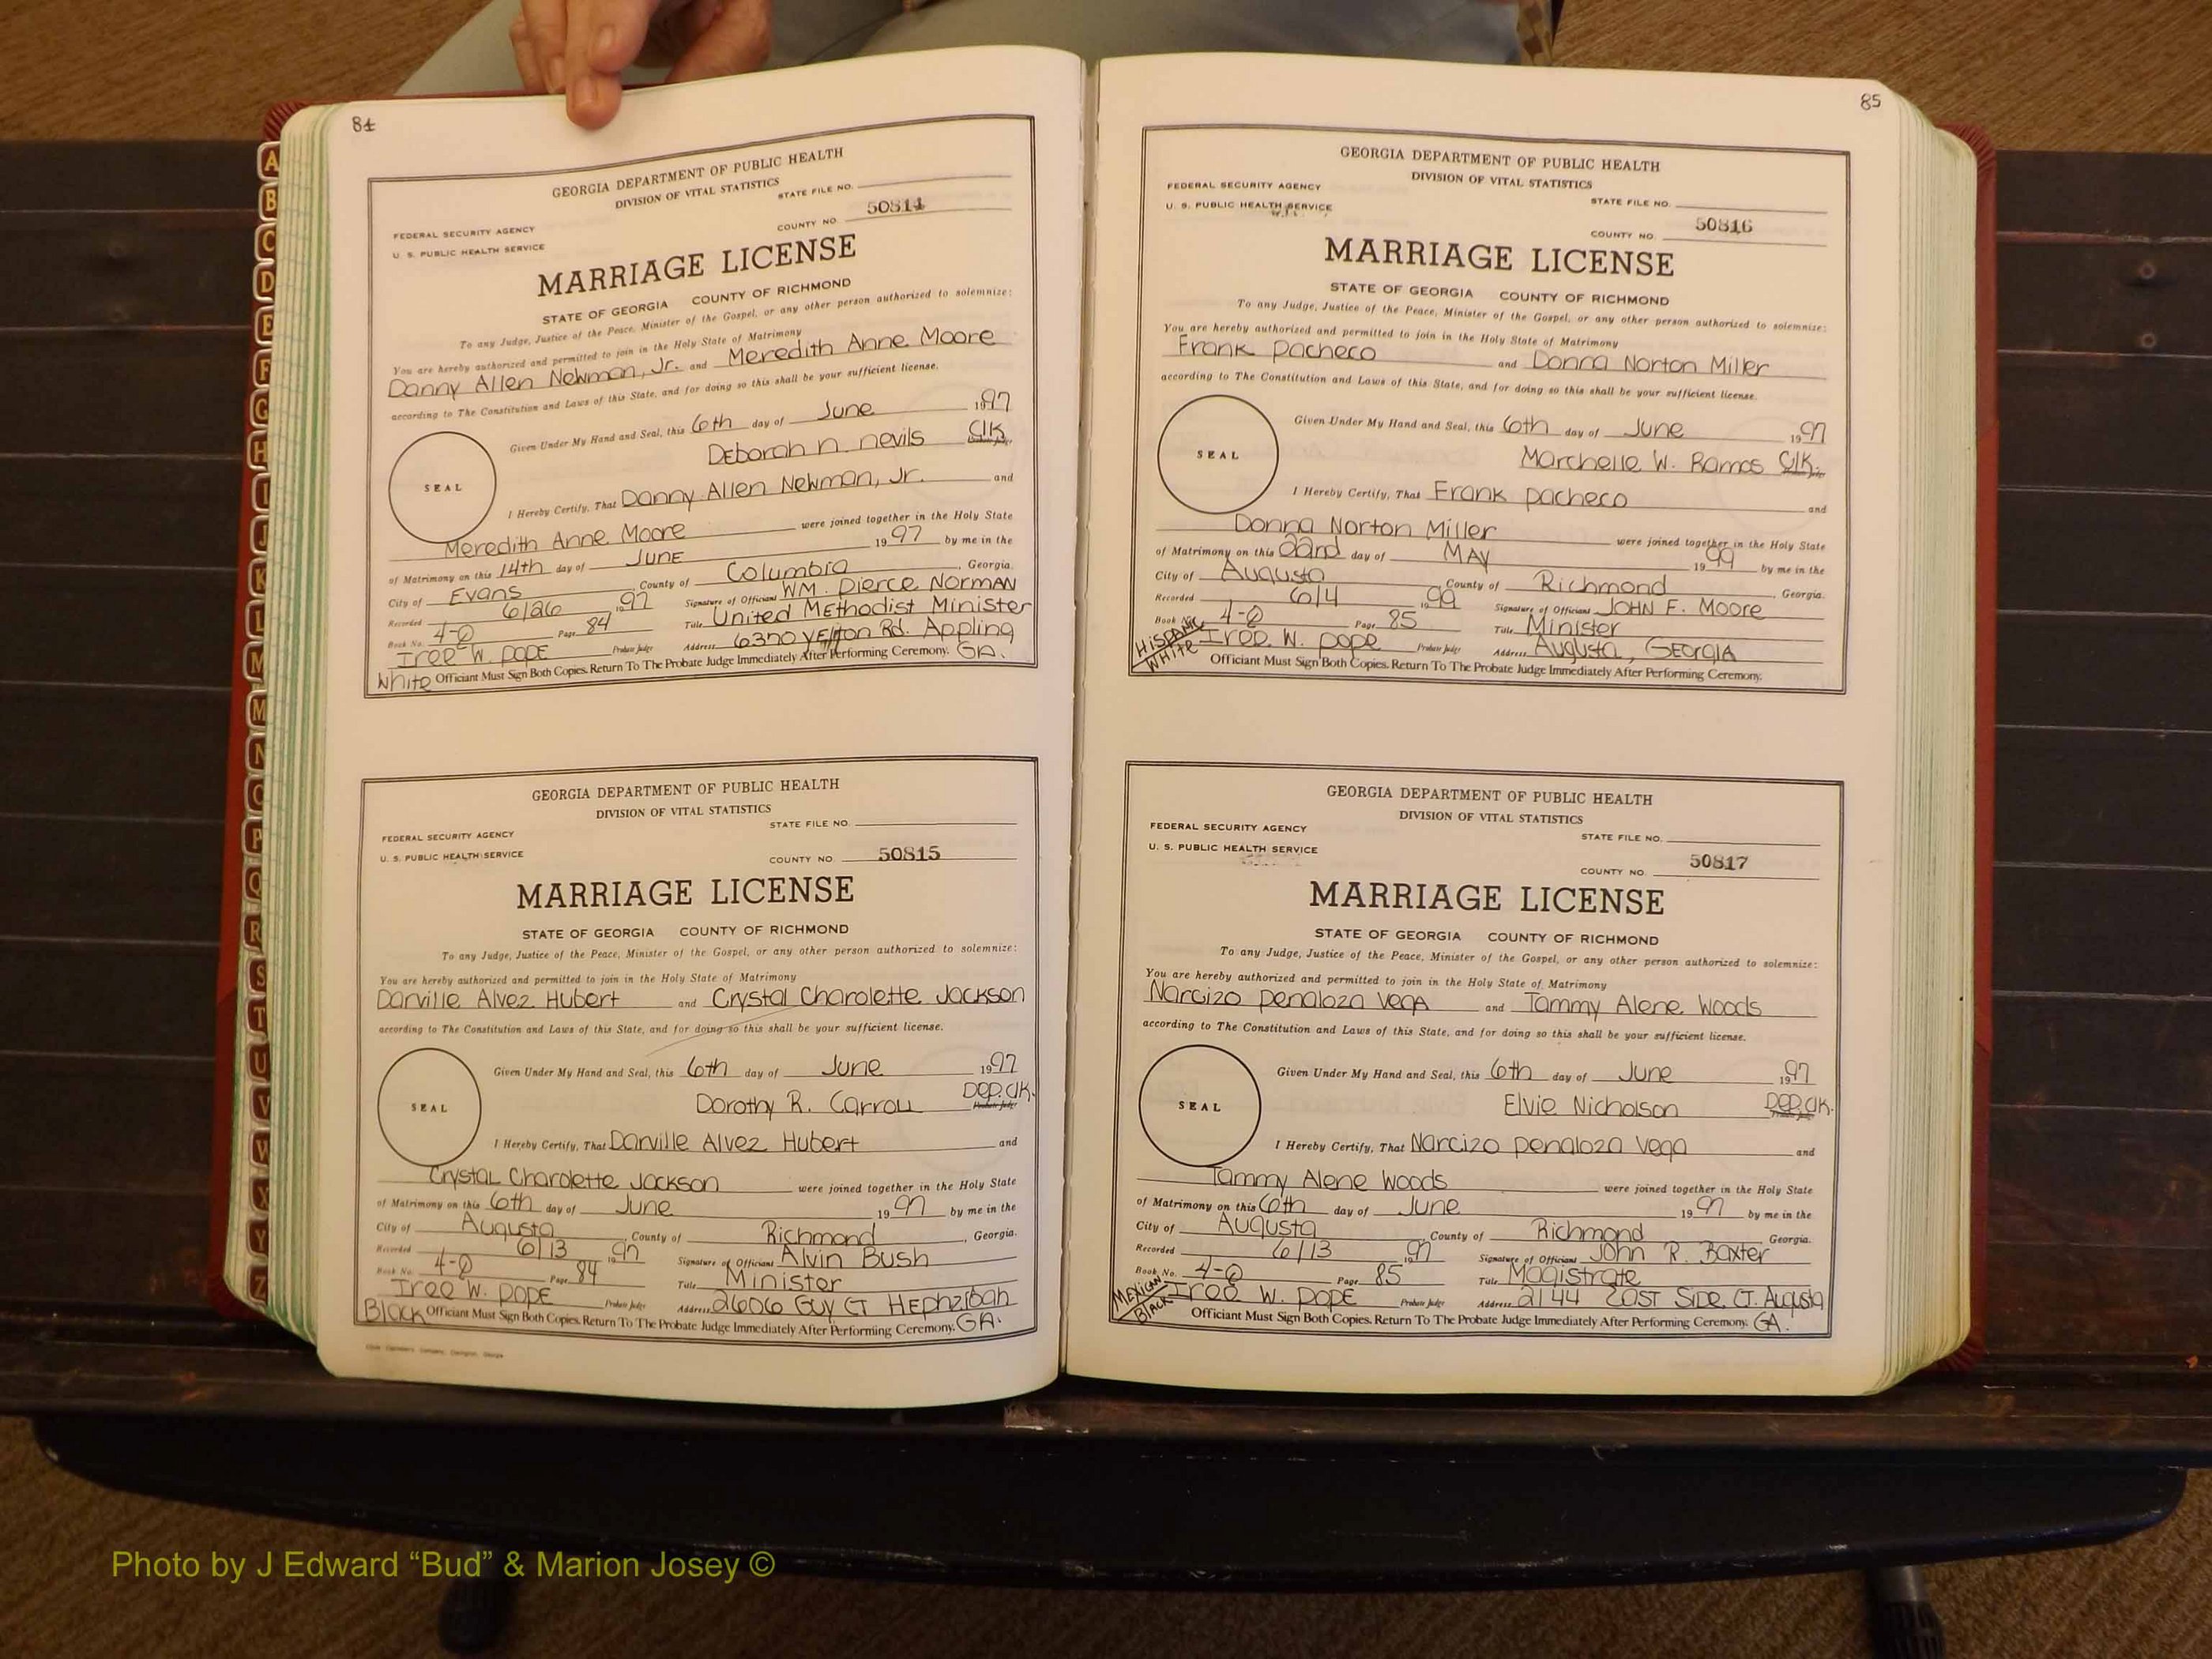 84
GEORGIA DEPARTMENT OF PUBLIC HEALTH
DIVISION OF VITAL STATISTICS
STATE FILE NO.
COUNTY NO. 50814
FEDERAL SECURITY AGENCY
U. S. PUBLIC HEALTH SERVICE
MARRIAGE LICENSE
STATE OF GEORGIA COUNTY OF RICHMOND
To any Judge, Justice of the Peace, Minister of the Gospel, or any other person authorized to solemnize:
You are hereby authorized and permitted to join in the Holy State of Matrimony
Danny Allen Newman, Jr. and Meredith Anne Moore
according to The Constitution and Laws of this State, and for doing so this shall be your sufficient license.
Given Under My Hand and Seal, this 6th day of June 1997
Deborah N. Nevils Clk.
SEAL
I Hereby Certify, That Danny Allen Newman, Jr. and
Meredith Anne Moore were joined together in the Holy State
of Matrimony on this 14th day of June 1997 by me in the
City of Evans County of Columbia, Georgia.
Recorded 6/26 1997 Signature of Officiant WM. Pierce Norman
Book No. 4-Q Page 84 Title United Methodist Minister
Iree W. Pope Probate Judge Address 6320 Rd. Appling
White Officiant Must Sign Both Copies. Return To The Probate Judge Immediately After Performing Ceremony. GA.
GEORGIA DEPARTMENT OF PUBLIC HEALTH
DIVISION OF VITAL STATISTICS
STATE FILE NO.
FEDERAL SECURITY AGENCY
U. S. PUBLIC HEALTH SERVICE
COUNTY NO. 50815
MARRIAGE LICENSE
STATE OF GEORGIA COUNTY OF RICHMOND
To any Judge, Justice of the Peace, Minister of the Gospel, or any other person authorized to solemnize:
You are hereby authorized and permitted to join in the Holy State of Matrimony
Darville Alvez Hubert and Crystal Charolette Jackson
according to The Constitution and Laws of this State, and for doing so this shall be your sufficient license.
Given Under My Hand and Seal, this 6th day of June 1997
Dorothy R. Carroll Dep. Clk.
SEAL
I Hereby Certify, That Darville Alvez Hubert and
Crystal Charolette Jackson were joined together in the Holy State
of Matrimony on this 6th day of June 1997 by me in the
City of Augusta, County of Richmond, Georgia.
Recorded 6/13 1997 Signature of Officiant Alvin Bush
Book No. 4-Q Page 84 Title Minister
Iree W. Pope Probate Judge Address 2606 Guy Ct Hephzibah
Black Officiant Must Sign Both Copies. Return To The Probate Judge Immediately After Performing Ceremony. GA.
85
GEORGIA DEPARTMENT OF PUBLIC HEALTH
DIVISION OF VITAL STATISTICS
FEDERAL SECURITY AGENCY
U. S. PUBLIC HEALTH SERVICE
STATE FILE NO.
COUNTY NO. 50816
MARRIAGE LICENSE
STATE OF GEORGIA COUNTY OF RICHMOND
To any Judge, Justice of the Peace, Minister of the Gospel, or any other person authorized to solemnize:
You are hereby authorized and permitted to join in the Holy State of Matrimony
Frank Pacheco and Donna Norton Miller
according to The Constitution and Laws of this State, and for doing so this shall be your sufficient license.
Given Under My Hand and Seal, this 6th day of June 1997
Marchelle W. Ramos Clk.
SEAL
I Hereby Certify, That Frank Pacheco and
Donna Norton Miller were joined together in the Holy State
of Matrimony on this 22nd day of May 1999 by me in the
City of Augusta County of Richmond, Georgia.
Recorded 6/4 1999 Signature of Officiant John F. Moore
Book No. 4-Q Page 85 Title Minister
Hispanic Iree W. Pope Probate Judge Address Augusta, Georgia
White Officiant Must Sign Both Copies. Return To The Probate Judge Immediately After Performing Ceremony.
GEORGIA DEPARTMENT OF PUBLIC HEALTH
DIVISION OF VITAL STATISTICS
FEDERAL SECURITY AGENCY
U. S. PUBLIC HEALTH SERVICE
STATE FILE NO.
COUNTY NO. 50817
MARRIAGE LICENSE
STATE OF GEORGIA COUNTY OF RICHMOND
To any Judge, Justice of the Peace, Minister of the Gospel, or any other person authorized to solemnize:
You are hereby authorized and permitted to join in the Holy State of Matrimony
Narcizo Penaloza Vega and Tammy Alene Woods
according to The Constitution and Laws of this State, and for doing so this shall be your sufficient license.
Given Under My Hand and Seal, this 6th day of June 1997
Elvie Nicholson Dep. Clk.
SEAL
I Hereby Certify, That Narcizo Penaloza Vega and
Tammy Alene Woods were joined together in the Holy State
of Matrimony on this 6th day of June 1997 by me in the
City of Augusta County of Richmond Georgia.
Recorded 6/13 1997 Signature of Officiant John R. Baxter
Book No. 4-Q Page 85 Title Magistrate
Mexican Iree W. Pope Probate Judge Address 2144 East Side Ct. Augusta
Black Officiant Must Sign Both Copies. Return To The Probate Judge Immediately After Performing Ceremony. GA.
A
B
C
D
E
F
G
H
I
J
K
L
M
M
N
O
P
Q
R
S
T
U
V
W
X
Y
Z
Photo by J Edward “Bud” & Marion Josey ©